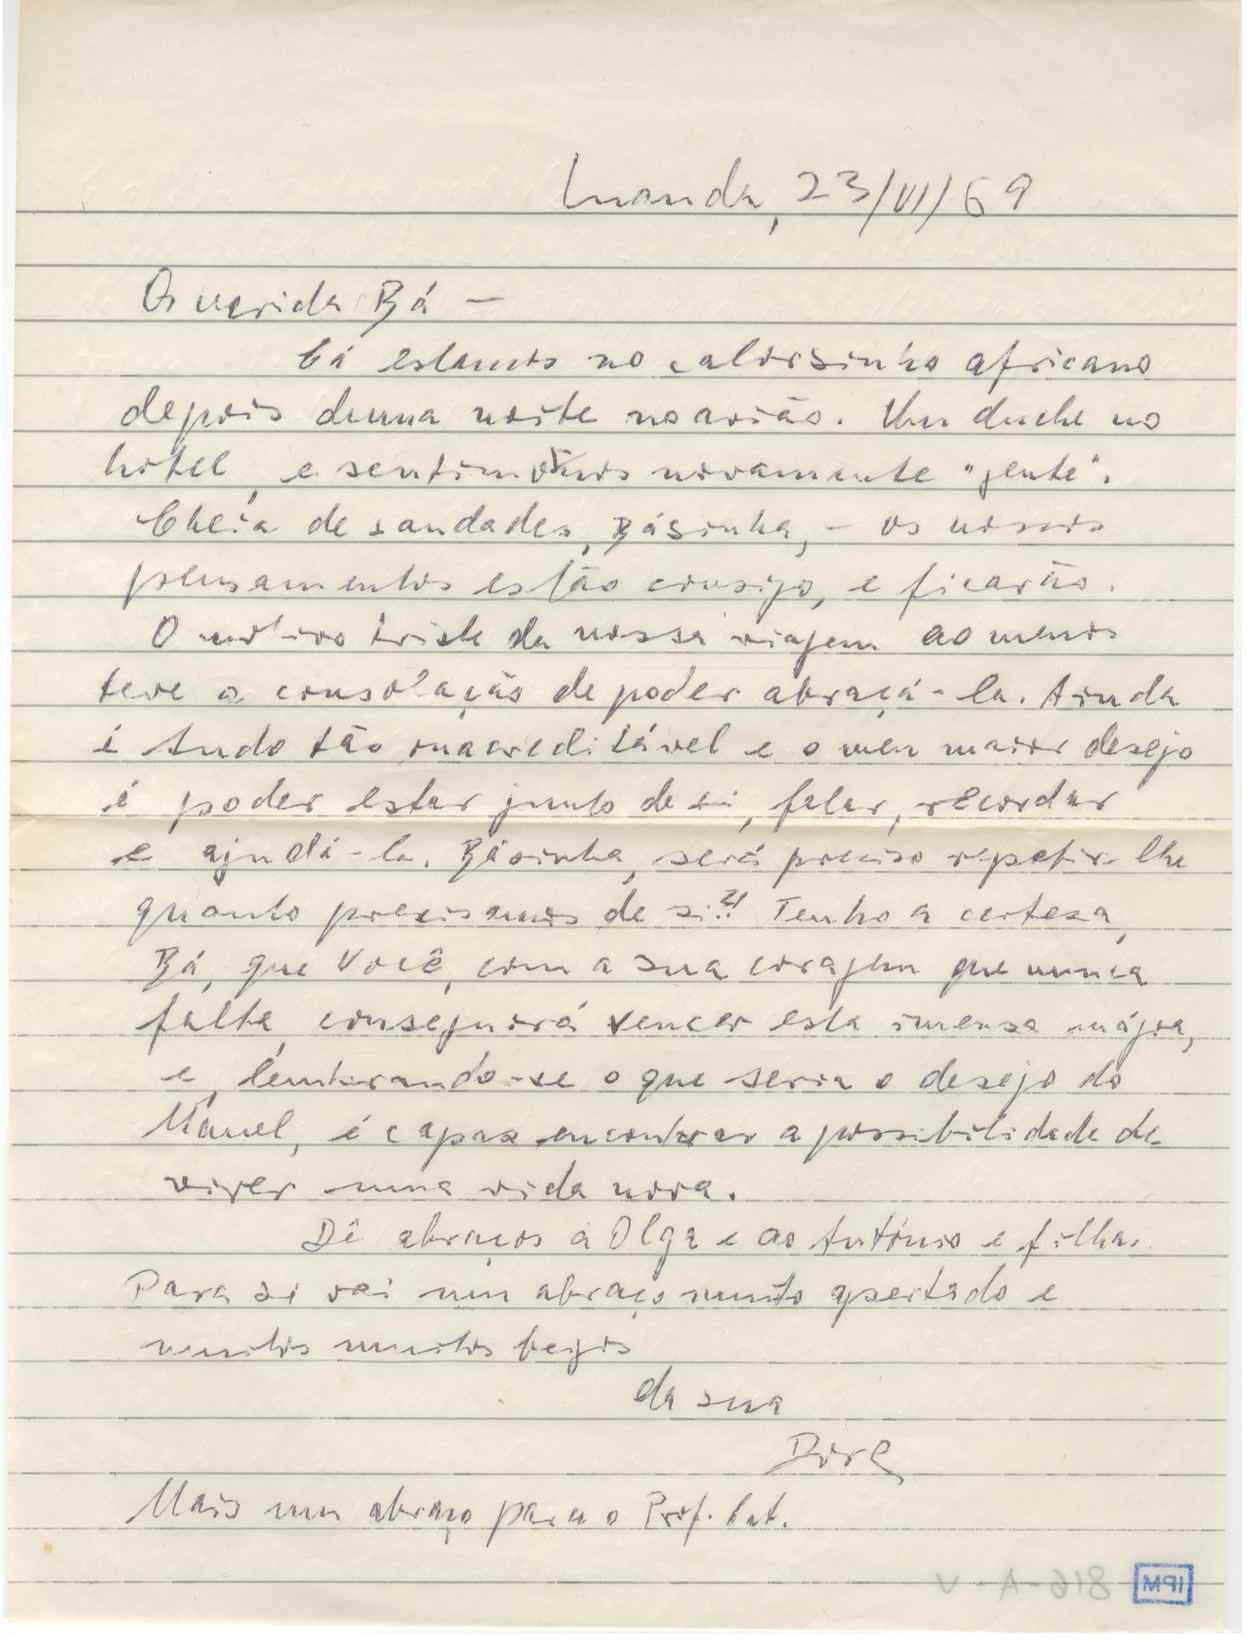 Luanda, 23/VI/69
Querida Bá —
Cá estamos no calorsinho africano
depois duma noite no avião. Um duche no
hotel, e sentimo-nos novamente "gente".
Cheia de saudades, Básinha, - os nossos
pensamentos estão consigo, e ficarão.
O motivo triste da nossa viagem ao menos
teve a consolação de poder abraçá-la. Ainda
é tudo tão inacreditável e o meu maior desejo
é poder estar junto de si, falar, recordar
e ajudá-la. Básinha, será preciso repetir-lhe
quanto precisamos de si?! Tenho a certeza,
Bá, que Você, com a sua coragem que nunca
falta, conseguirá vencer esta imensa mágoa,
e, lembrando-se o que seria o desejo do
Manel, é capaz encontrar a possibilidade de
viver uma vida nova.
Dê abraços à Olga e ao António e filhas.
Para si vai um abraço muito apertado e
muitos muitos beijos
da sua
Mais um abraço para o Prof. Cat.
V-A-618 IPM